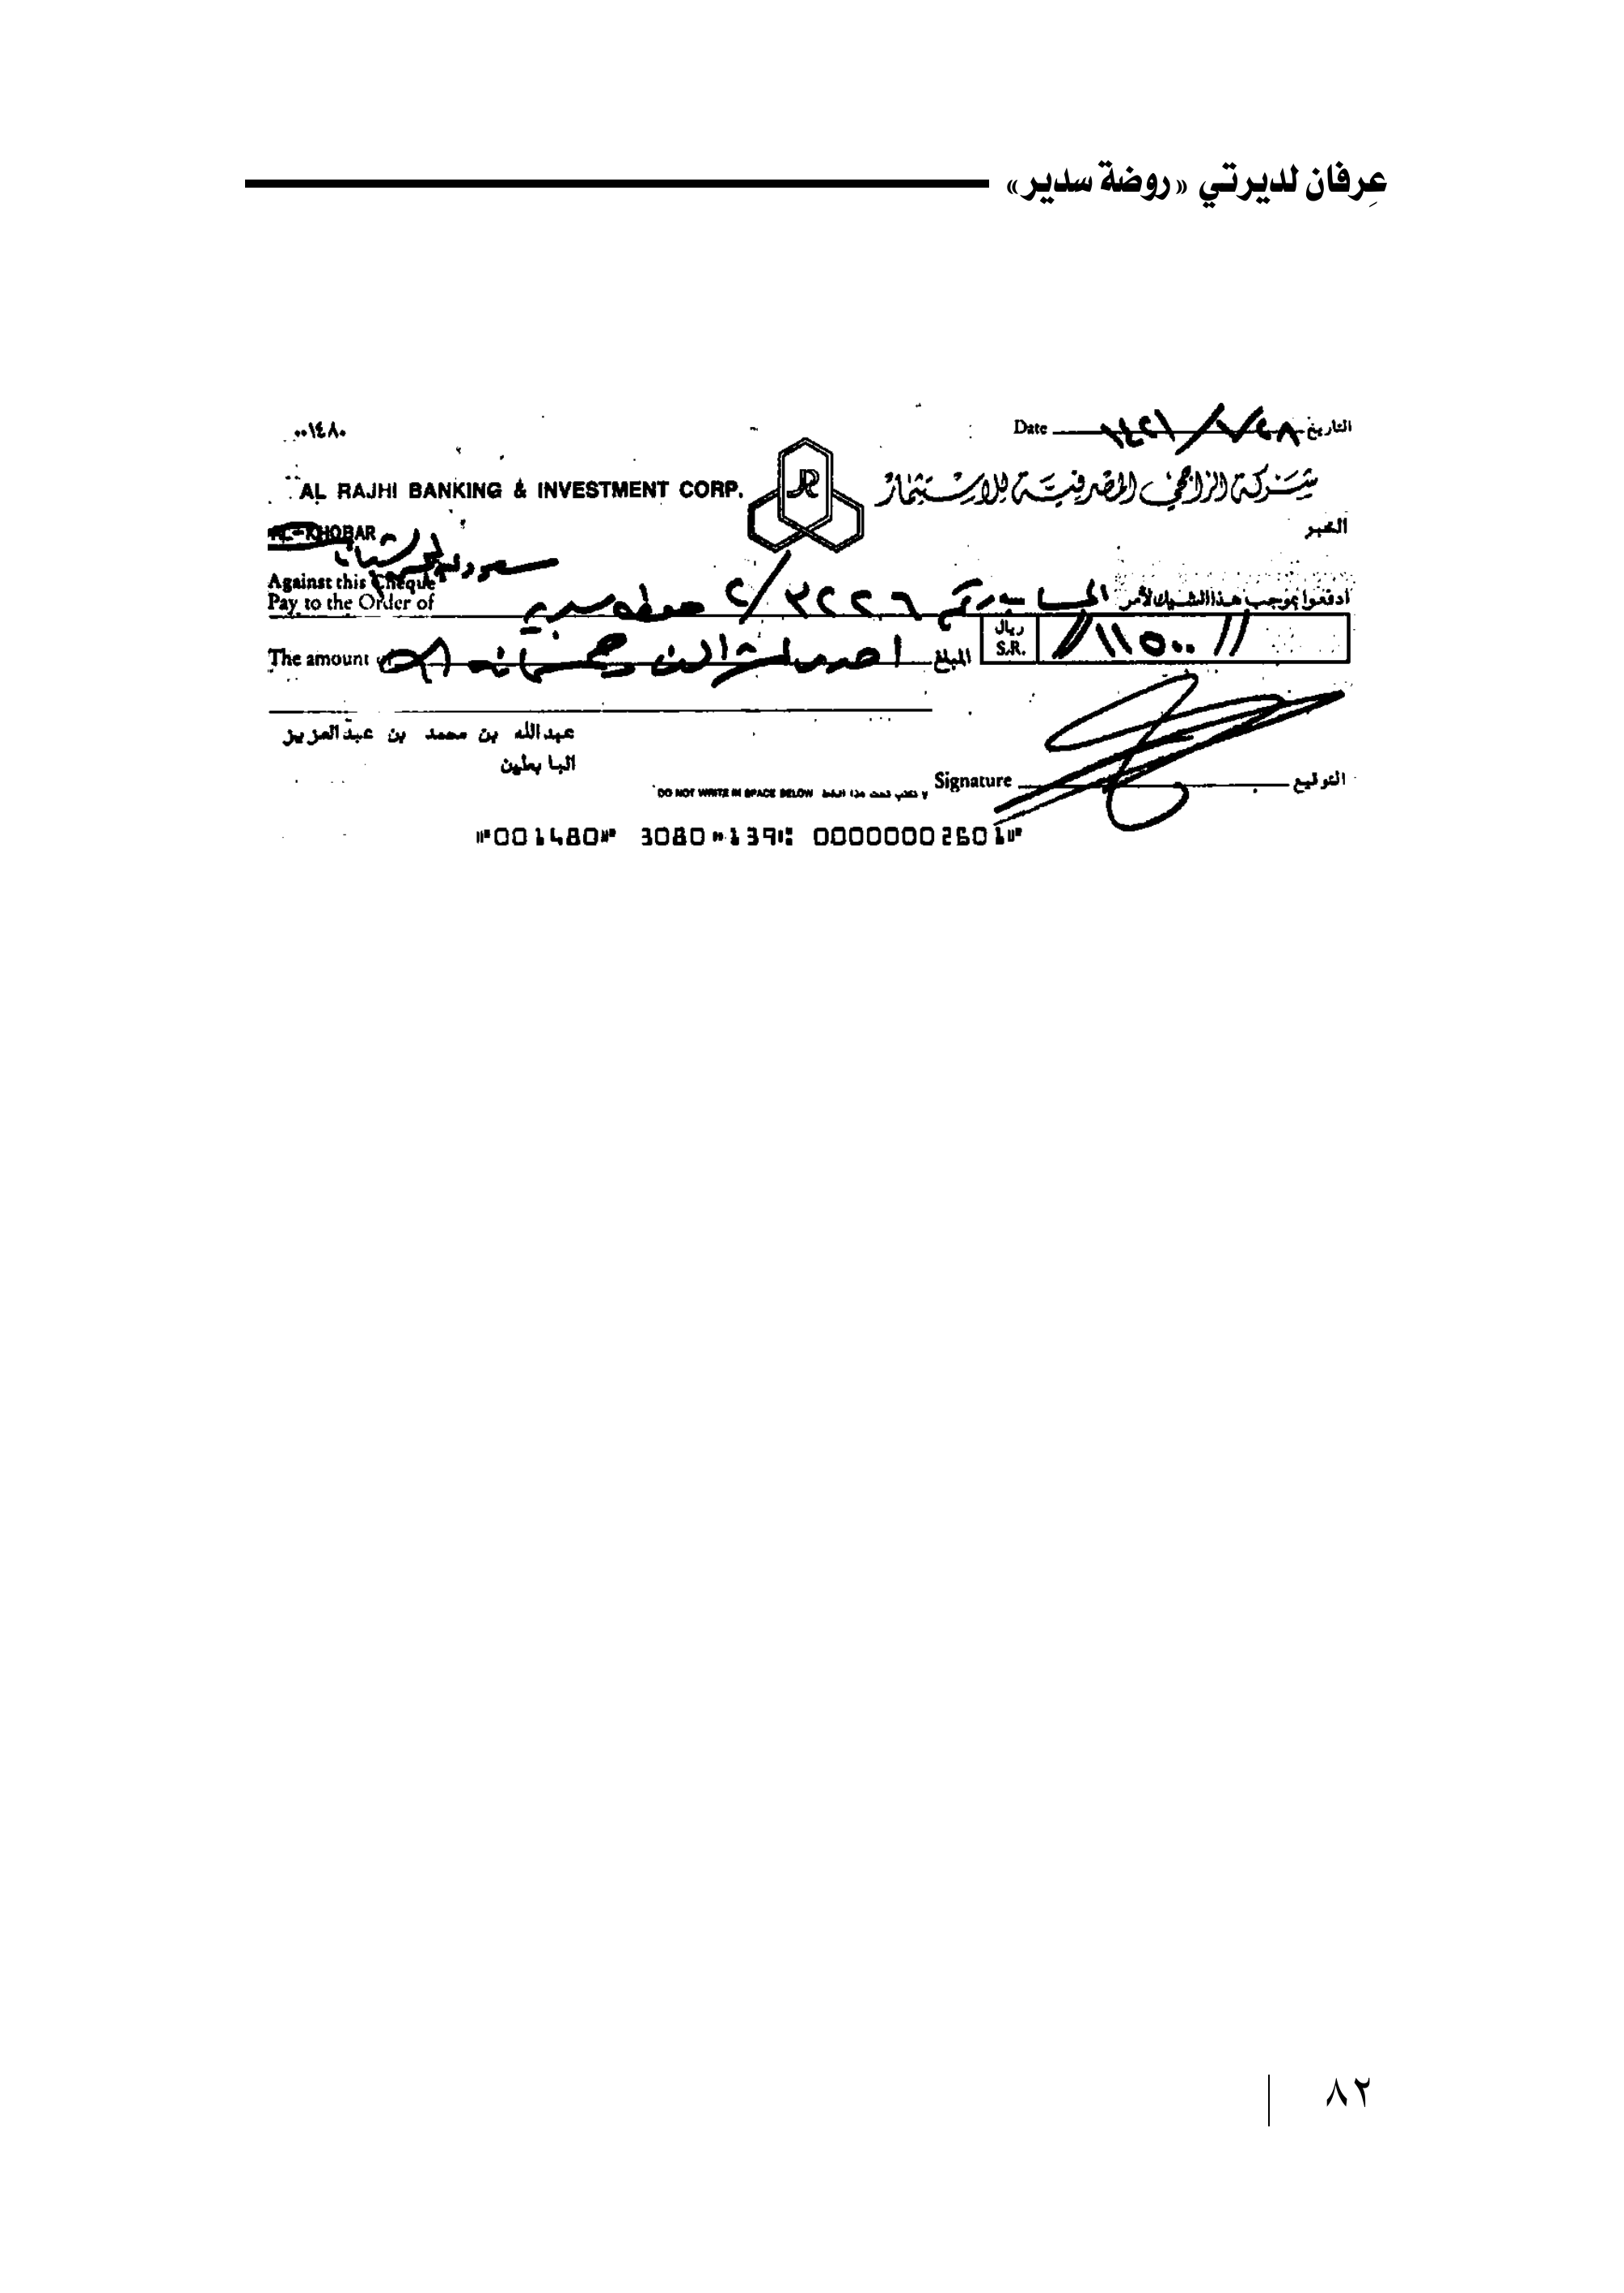 عِرفان لديرتي «روضة سدير»
٠٠١٤٨٠
Date ١٤٢١/٧/٢٨ التاريخ
AL RAJHI BANKING & INVESTMENT CORP.
شركة الراجحي المصرفية للاستثمار
AL-KHOBAR
الخبر
سعود
Against this Cheque
Pay to the Order of
ادفعوا بموجب هذا الشيك لأمر الحساب رقم ٢/٣٢٢٦ سدير
ريال
S.R.
//١١٥٠٠//
The amount المبلغ احد عشر الف وخمسمائة
عبدالله بن محمد بن عبدالعزيز
البابطين
Signature التوقيع
DO NOT WRITE IN SPACE BELOW لا تكتب تحت هذا الخط
⑈001480⑈ 3080⑉139⑆ 00000002601⑈
٨٢